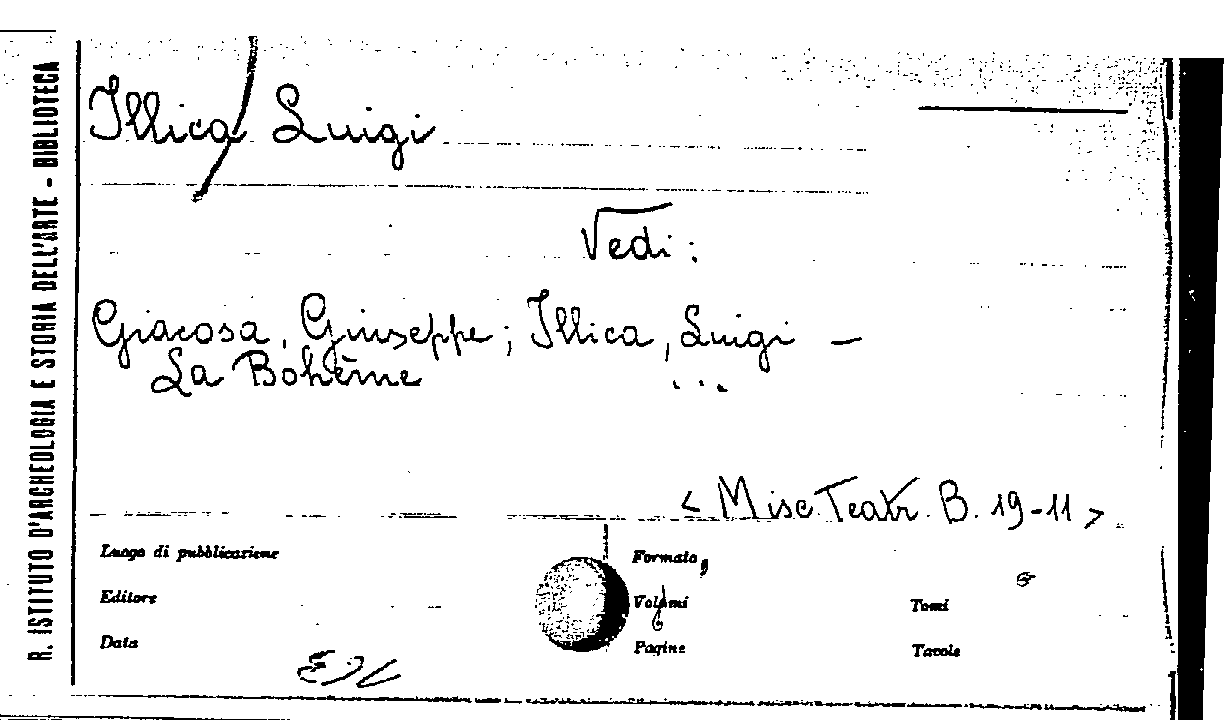 R. ISTITUTO D'ARCHEOLOGIA E STORIA DELL'ARTE - BIBLIOTECA
Illica Luigi
Vedi:
Giacosa, Giuseppe; Illica, Luigi —
La Bohème ...
< Misc. Teatr. B. 19-11 >
Luogo di pubblicazione
Formato
Editore
Volumi
Tomi
Data
Pagine
Tavole